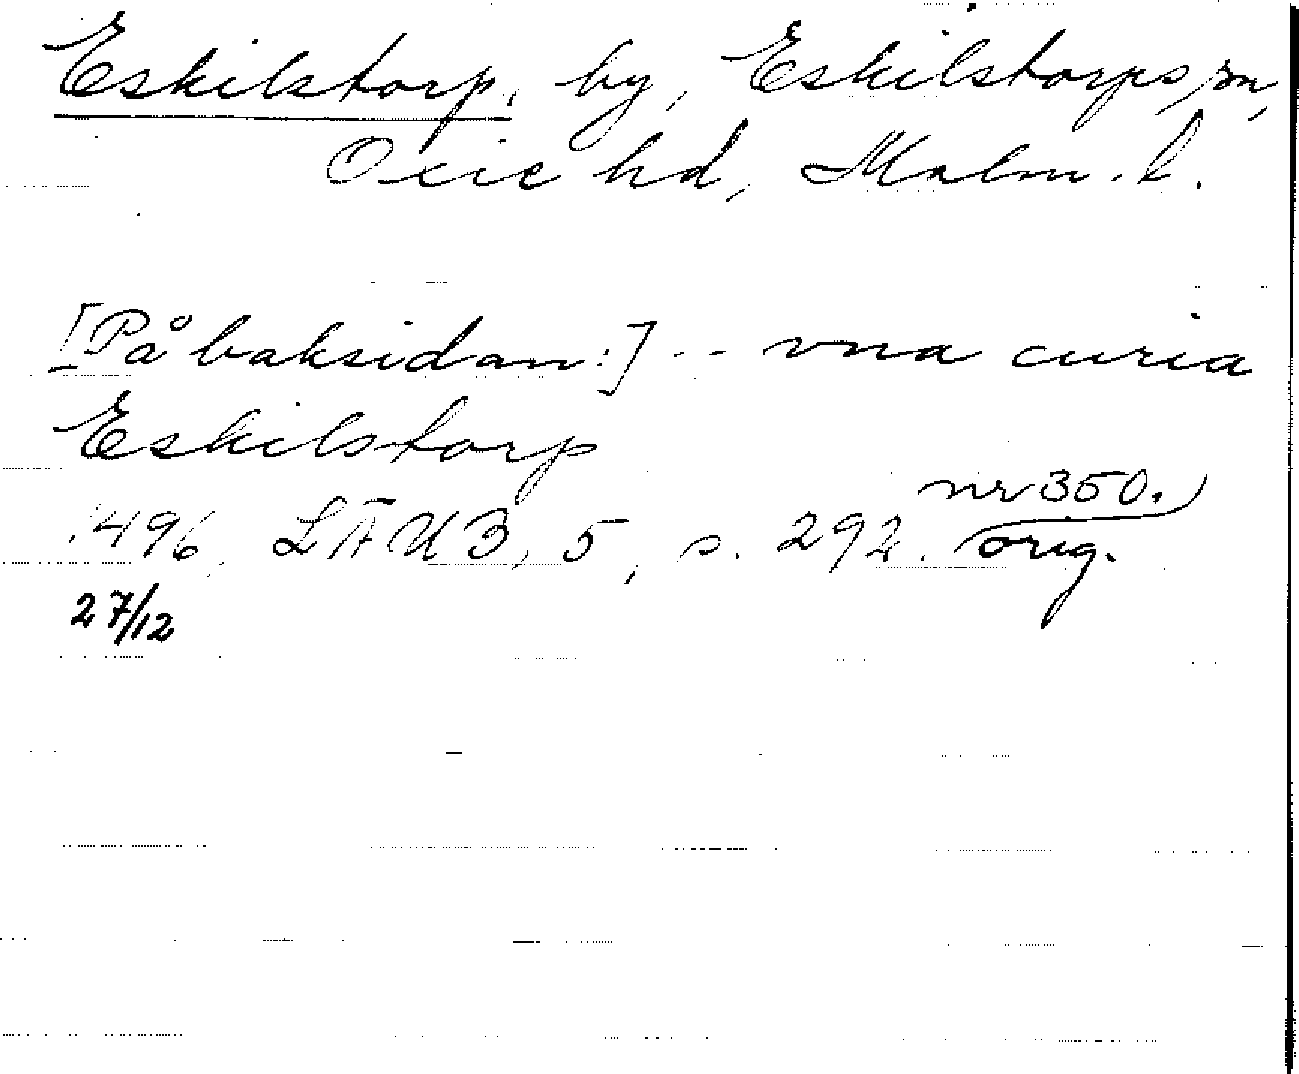 Eskilstorp, by, Eskilstorps sn,
Oxie hd, Malm. l.
[På baksidan:] -- vna curia
Eskilstorp
1496, LÄUB, 5, s. 292. orig.
nr 350.)
27/12